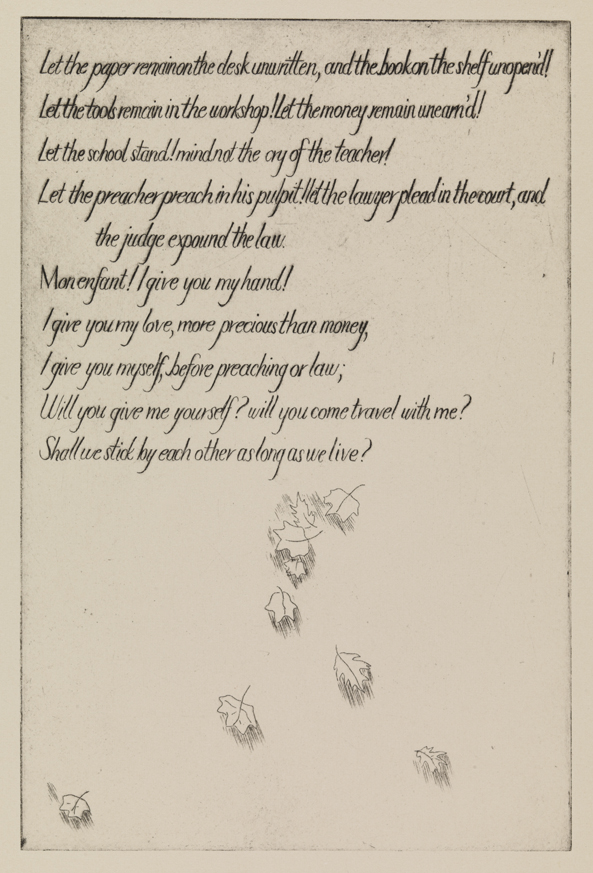 Let the paper remain on the desk unwritten, and the book on the shelf unopen'd!
Let the tools remain in the workshop! Let the money remain unearn'd!
Let the school stand! mind not the cry of the teacher!
Let the preacher preach in his pulpit! let the lawyer plead in the court, and
the judge expound the law.
Mon enfant! I give you my hand!
I give you my love, more precious than money,
I give you myself, before preaching or law;
Will you give me yourself? will you come travel with me?
Shall we stick by each other as long as we live?